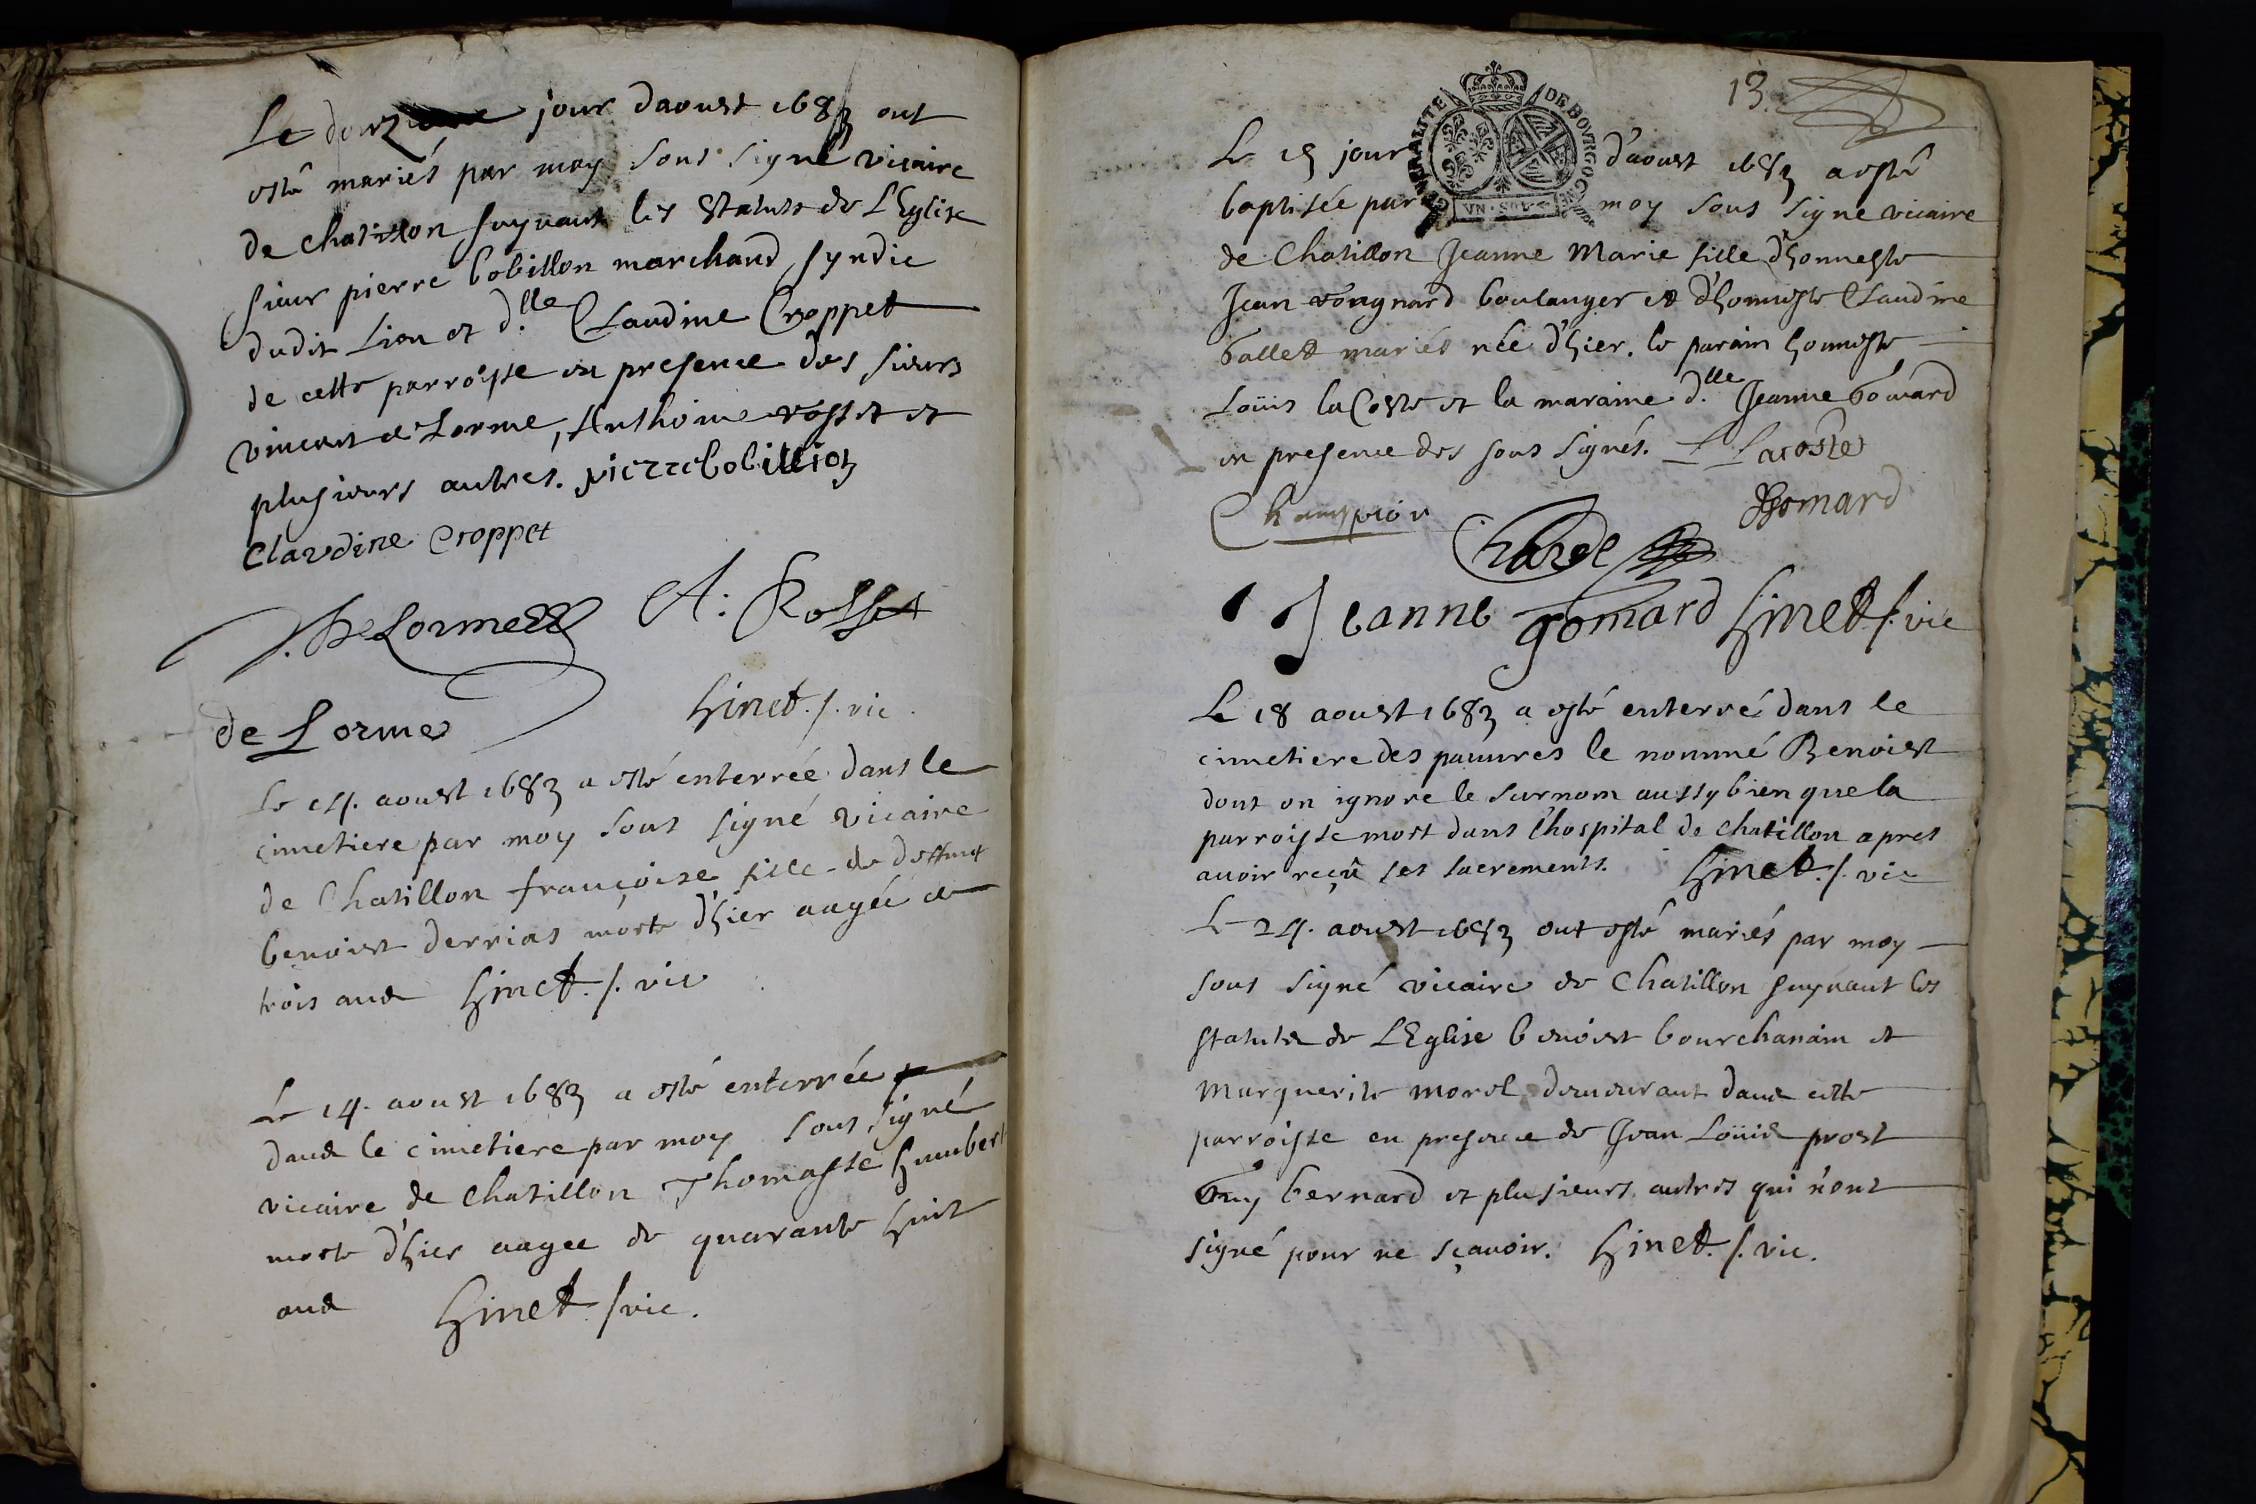 Le douziéme jour daoust 1683 ont
esté mariés par moy sous signé vicaire
de chatillon suyvant les statuts de L'Eglise
sieur pierre bobillon marchand, syndic
dudit Lieu et d.lle Claudine Croppet
de cette parroisse en presence des sieurs
vincent de Lorme, Anthoine rosset et
plusieurs autres. pierre bobillion
Claudine Croppet
V. De Lorme A: Rosset
Hinet. s. vic.
de Lorme
Le 14. aoust 1683 a esté enterrée dans le
cimetiere par moy sous signé vicaire
de Chatillon françoise fille de deffunct
benoist derrias morte d'hier aagée de
trois ans Hinet. s. vic
Le 14. aoust 1683 a esté enterrée
dans le cimetiere par moy sous signé
vicaire de chatillon Thomasse humbert
morte d'hier aagee de quarante huit
ans Hinet s vic.
13.
GENERALITE DE BOVRGOGNE
VN · SOL
Le 15 jour d'aoust 1683 a esté
baptisée par moy sous signe vicaire
de Chatillon Jeanne Marie fille d'honneste
Jean rongnard boulanger et d'honneste Claudine
Gallet mariés née d'hier. le parain honneste
Loüis la Coste et la maraine d.lle Jeanne Gomard
en presence des sous signés. L Lacoste
Champion Gomard
Charde
Jeanne gomard Hinet s. vic
Le 18 aoust 1683 a esté enterré dans le
cimetiere des pauures le nommé Benoist
dont on ignore le surnom aussy bien que la
parroisse mort dans l'hospital de chatillon apres
auoir reçû ses sacrements. Hinet. s. vic
Le 24. aoust 1683 ont esté mariés par moy
sous signé vicaire de Chatillon suyvant les
statuts de L'Eglise benoist bourchanin et
Marguerite morel demeurant dans cette
parroisse en presence de Jean Loüis prost
Guy bernard et plusieurs autres qui n'ont
signé pour ne sçauoir. Hinet. s. vic.